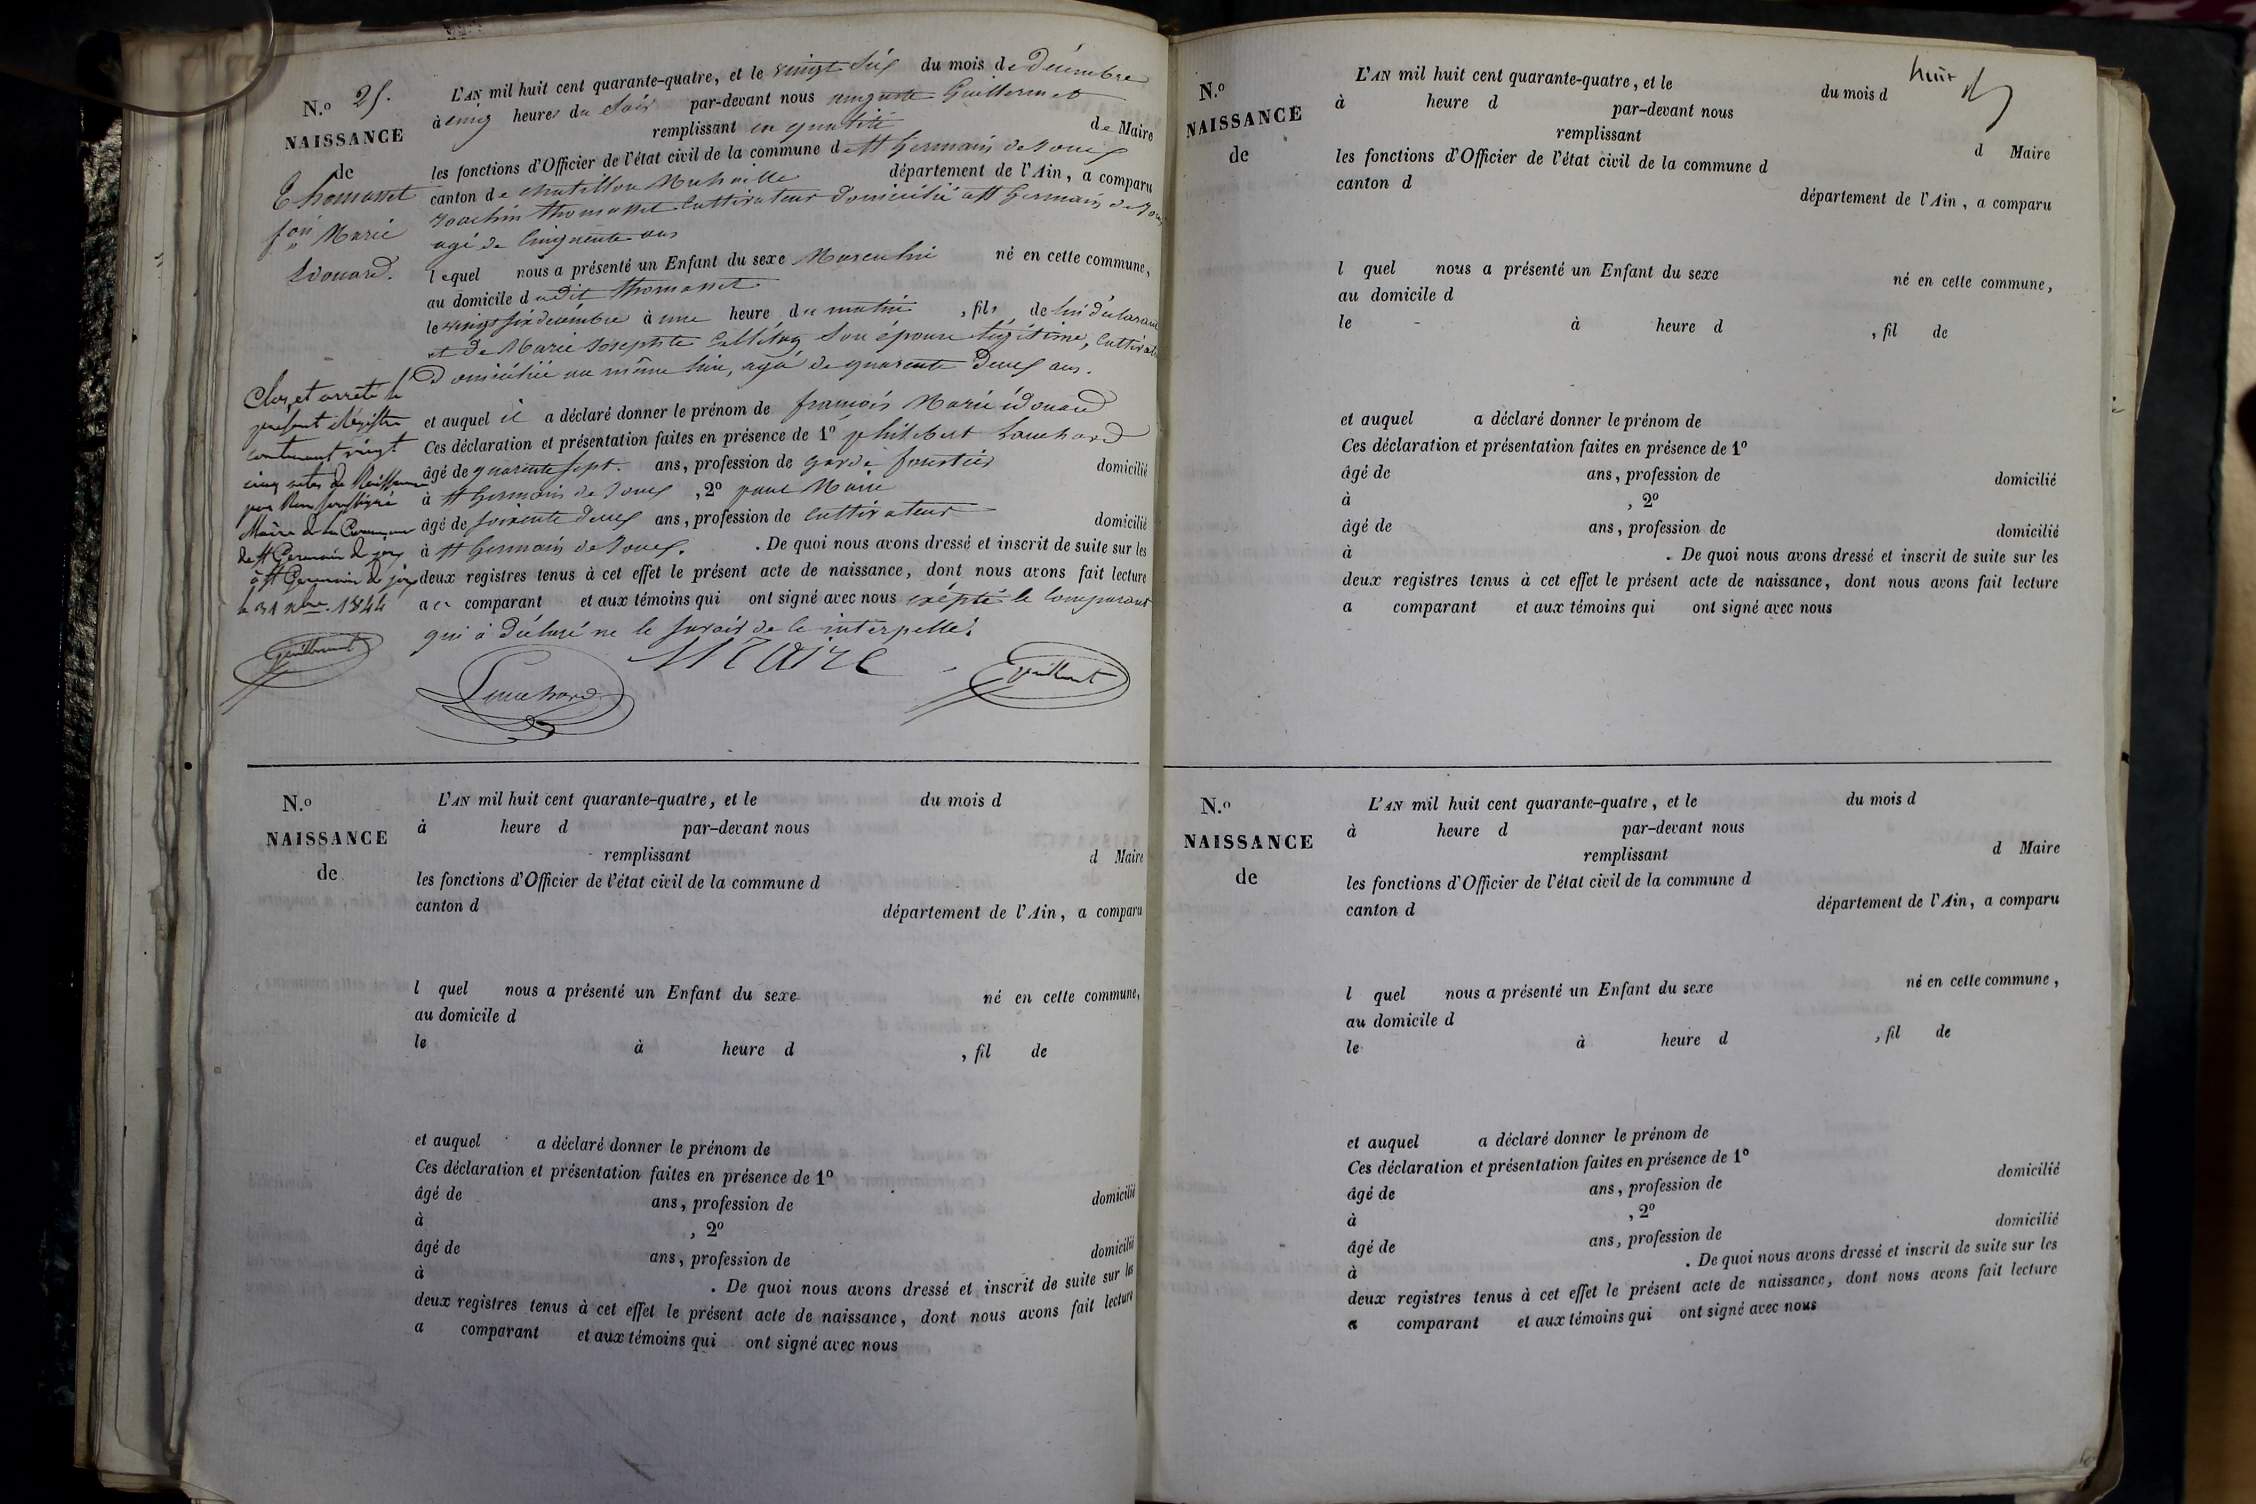 N.o 25.
NAISSANCE
de
Thomasset
fois Marie
édouard.
L'AN mil huit cent quarante-quatre, et le vingt Six du mois de Décembre
à cinq heures du Soir par-devant nous auguste Guillermet
remplissant en qualité de Maire
les fonctions d'Officier de l'état civil de la commune de St Germain de Joux
canton de chatillon Michaille département de l'Ain, a comparu
Joachin thomasset Cultivateur domicilié a St Germain de Joux
agé de Cinquente ans
lequel nous a présenté un Enfant du sexe Masculin né en cette commune,
au domicile dudit thomasset
le vingt six décembre à une heure du matin, fils, de lui déclarant
et de Marie Josephte son épouse légitime,
Domiciliée au même lieu, agé de quarente Deux ans.
et auquel il a déclaré donner le prénom de françois Marie édouard
Ces déclaration et présentation faites en présence de 1o philibert Louchard
âgé de quarente sept. ans, profession de garde forestier domicilié
à St Germain de Joux, 2o paul Maire
âgé de soixente deux ans, profession de Cultivateur domicilié
à St Germain de Joux. . De quoi nous avons dressé et inscrit de suite sur les
deux registres tenus à cet effet le présent acte de naissance, dont nous avons fait lecture
au comparant et aux témoins qui ont signé avec nous excepté le Comparant
qui à déclaré ne le savoir de ce interpellé.
Clos et arrêté le
présent Régistre
contenant vingt
cinq actes de Naissance
par Nous soussigné
Maire de la Commune
de St Germain de joux
à St Germain de joux
le 31 Xbre. 1844
Guillermet
Louchard
Maire
Guillermet
N.o
NAISSANCE
de
L'AN mil huit cent quarante-quatre, et le du mois d
à heure d par-devant nous
remplissant d Maire
les fonctions d'Officier de l'état civil de la commune d
canton d département de l'Ain, a comparu
l quel nous a présenté un Enfant du sexe né en cette commune,
au domicile d
le à heure d , fil de
et auquel a déclaré donner le prénom de
Ces déclaration et présentation faites en présence de 1o
âgé de ans, profession de domicilié
à , 2o
âgé de ans, profession de domicilié
à . De quoi nous avons dressé et inscrit de suite sur les
deux registres tenus à cet effet le présent acte de naissance, dont nous avons fait lecture
a comparant et aux témoins qui ont signé avec nous
huit
N.o
NAISSANCE
de
L'AN mil huit cent quarante-quatre, et le du mois d
à heure d par-devant nous
remplissant d Maire
les fonctions d'Officier de l'état civil de la commune d
canton d département de l'Ain, a comparu
l quel nous a présenté un Enfant du sexe né en cette commune,
au domicile d
le à heure d , fil de
et auquel a déclaré donner le prénom de
Ces déclaration et présentation faites en présence de 1o
âgé de ans, profession de domicilié
à , 2o
âgé de ans, profession de domicilié
à . De quoi nous avons dressé et inscrit de suite sur les
deux registres tenus à cet effet le présent acte de naissance, dont nous avons fait lecture
a comparant et aux témoins qui ont signé avec nous
N.o
NAISSANCE
de
L'AN mil huit cent quarante-quatre, et le du mois d
à heure d par-devant nous
remplissant d Maire
les fonctions d'Officier de l'état civil de la commune d
canton d département de l'Ain, a comparu
l quel nous a présenté un Enfant du sexe né en cette commune,
au domicile d
le à heure d , fil de
et auquel a déclaré donner le prénom de
Ces déclaration et présentation faites en présence de 1o
âgé de ans, profession de domicilié
à , 2o
âgé de ans, profession de domicilié
à . De quoi nous avons dressé et inscrit de suite sur les
deux registres tenus à cet effet le présent acte de naissance, dont nous avons fait lecture
a comparant et aux témoins qui ont signé avec nous